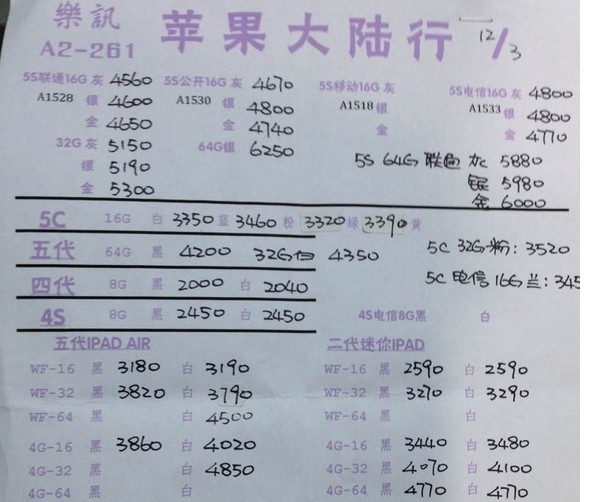 樂訊 苹果大陆行 12/3
A2-261
5S联通16G 灰 4560 5S公开16G 灰 4670 5S移动16G 灰 5S电信16G 灰 4800
A1528 银 4600 A1530 银 4800 A1518 银 A1533 银 4800
金 4650 金 4740 金 金 4770
32G 灰 5150 64G银 6250 5S 64G 联通 灰 5880
银 5190 银 5980
金 5300 金 6000
5C 16G 白 3350 蓝 3460 粉 3320 绿 3390 黄
五代 64G 黑 4200 32G白 4350 5C 32G粉:3520
四代 8G 黑 2000 白 2040 5C 电信 16G 兰:345
4S 8G 黑 2450 白 2450 4S电信8G黑 白
五代IPAD AIR 二代迷你IPAD
WF-16 黑 3180 白 3190 WF-16 黑 2590 白 2590
WF-32 黑 3820 白 3790 WF-32 黑 3270 白 3290
WF-64 黑 白 4500 WF-64 黑 白
4G-16 黑 3860 白 4020 4G-16 黑 3440 白 3480
4G-32 黑 白 4850 4G-32 黑 4070 白 4100
4G-64 黑 白 4G-64 黑 4770 白 4770